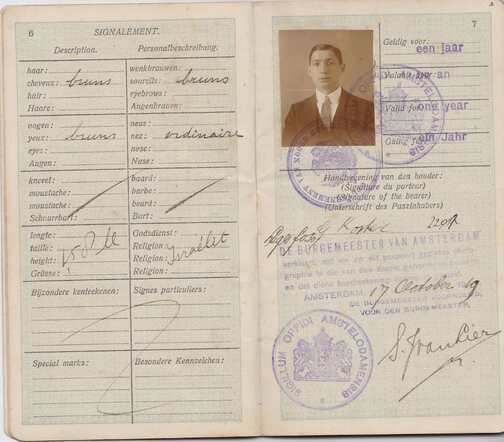 6
SIGNALEMENT.
Description.
Personalbeschreibung.
haar:
cheveux:
hair:
Haare:
bruns
wenkbrauwen:
sourcils:
eyebrows:
Augenbrauen:
bruns
oogen:
yeux:
eyes:
Augen:
bruns
neus:
nez:
nose:
Nase:
ordinaire
knevel:
moustache:
moustache:
Schnurrbart:
baard:
barbe:
beard:
Bart:
lengte:
taille:
height:
Grösse:
Godsdienst:
Religion:
Religion:
Religion:
Israélite
Bijzondere kenteekenen:
Signes particuliers:
Special marks:
Besondere Kennzeichen:
7
Geldig voor:
een jaar
Valable pour:
un an
Valid for:
one year
Gültig für:
ein Jahr
Handteekening van den houder:
(Signature du porteur)
(Signature of the bearer)
(Unterschrift des Passinhabers)
DE BURGEMEESTER VAN AMSTERDAM
AMSTERDAM, 17 October 19
VOOR DEN BURGEMEESTER,
SIGILLUM OPPIDI AMSTELODAMENSIS